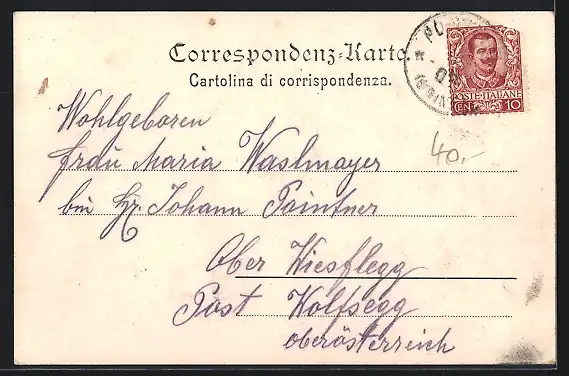 Correspondenz-Karte.
Cartolina di corrispondenza.
POSTE·ITALIANE
CENT. 10
Wohlgeboren
Frau Maria Waslmayer
bei Hr. Johann Paintner
40.-
Ober Wiesflegg
Post Wolfsegg
oberösterreich